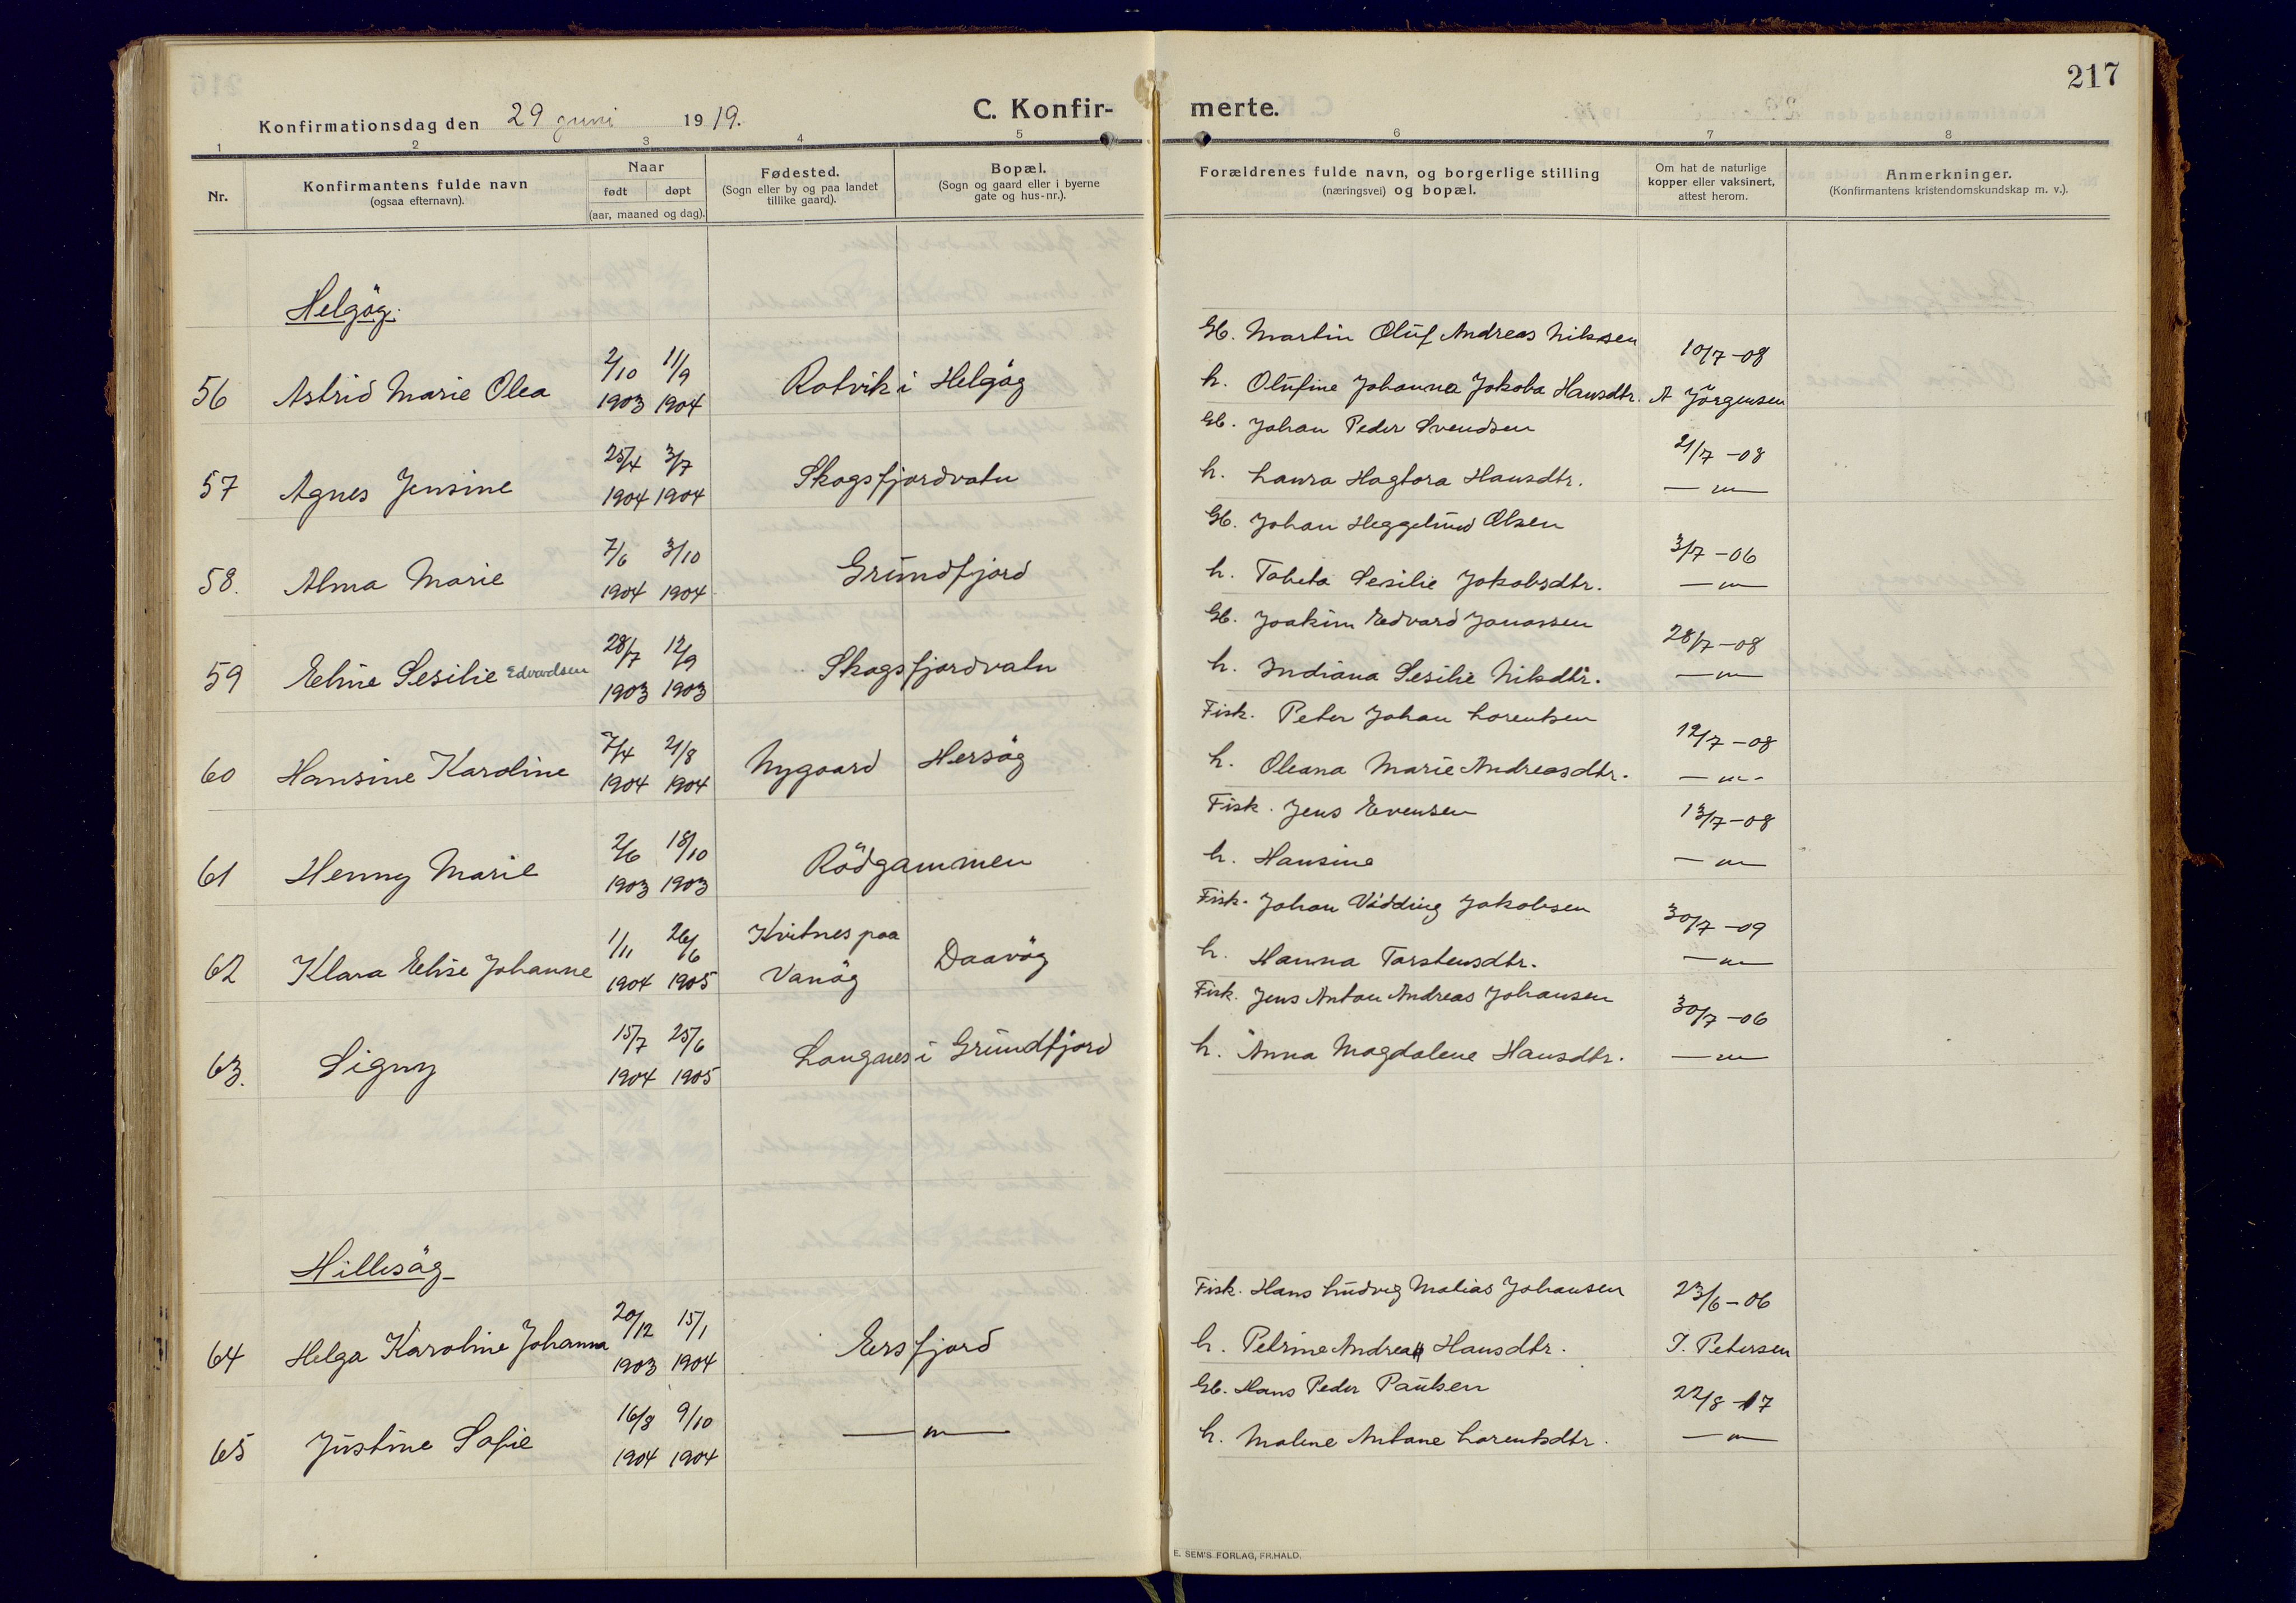 217
Konfirmationsdag den 29 juni 1919.
C. Konfir-
merte.
1 2 3 4 5 6 7 8
Nr.
Konfirmantens fulde navn
(ogsaa efternavn).
Naar
født døpt
(aar, maaned og dag).
Fødested.
(Sogn eller by og paa landet
tillike gaard).
Bopæl.
(Sogn og gaard eller i byerne
gate og hus-nr.).
Forældrenes fulde navn, og borgerlige stilling
(næringsvei) og bopæl.
Om hat de naturlige
kopper eller vaksinert,
attest herom.
Anmerkninger.
(Konfirmantens kristendomskundskap m. v.).
Helgöy.
Gb. Martin Oluf Andreas Nilssen 10/7-08
2/10 11/9
56 Astrid Marie Olea 1903 1904 Rotvik i Helgöy h. Olufine Johanna Jakoba Hansdtr. A Jörgensen
Gb. Johan Peder Svendsen 21/7-08
25/4 3/7
57 Agnes Jensine 1904 1904 Skogsfjordvatn h. Laura Hagtora Hansdtr. — " —
Gb. Johan Heggelund Olsen 3/7-06
7/6 3/10
58. Alma Marie 1904 1904 Grundfjord h. Tabeta Sesilie Jakobsdtr. — " —
Gb. Joakim Edvard Jonassen 28/7-08
28/7 12/9
59 Eline Sesilie Edvardsen 1903 1903 Skogsfjordvatn h. Indiana Sesilie Nilsdtr. — " —
Fisk. Peter Johan Lorentsen 12/7-08
7/4 21/8
60 Hansine Karoline 1904 1904 Nygaard Hersöy h. Oleana Marie Andreasdtr. — " —
Fisk. Jens Evensen 13/7-08
2/6 18/10
61 Henny Marie 1903 1903 Rödgammen h. Hansine — " —
Fisk. Johan Vidding Jakobsen 30/7-09
1/11 26/6 Kvitnes paa
62 Klara Elise Johanne 1904 1905 Vanöy Daavöy h. Hanna Torstensdtr. — " —
Fisk. Jens Anton Andreas Johansen 30/7-06
15/7 25/6
63. Signy 1904 1905 Langnes i Grundfjord h. Anna Magdalene Hansdtr. — " —
Hillesöy
Fisk. Hans Ludvig Matias Johansen 23/6-06
20/12 15/1
64 Helga Karoline Johanna 1903 1904 Ersfjord h. Petrine Andrea Hansdtr. J. Petersen
Gb. Hans Peder Paulsen 22/8-17
16/8 9/10
65 Justine Sofie 1904 1904 — " — h. Malene Antone Lorentsdtr. — " —
E. SEM'S FORLAG, FR.HALD.